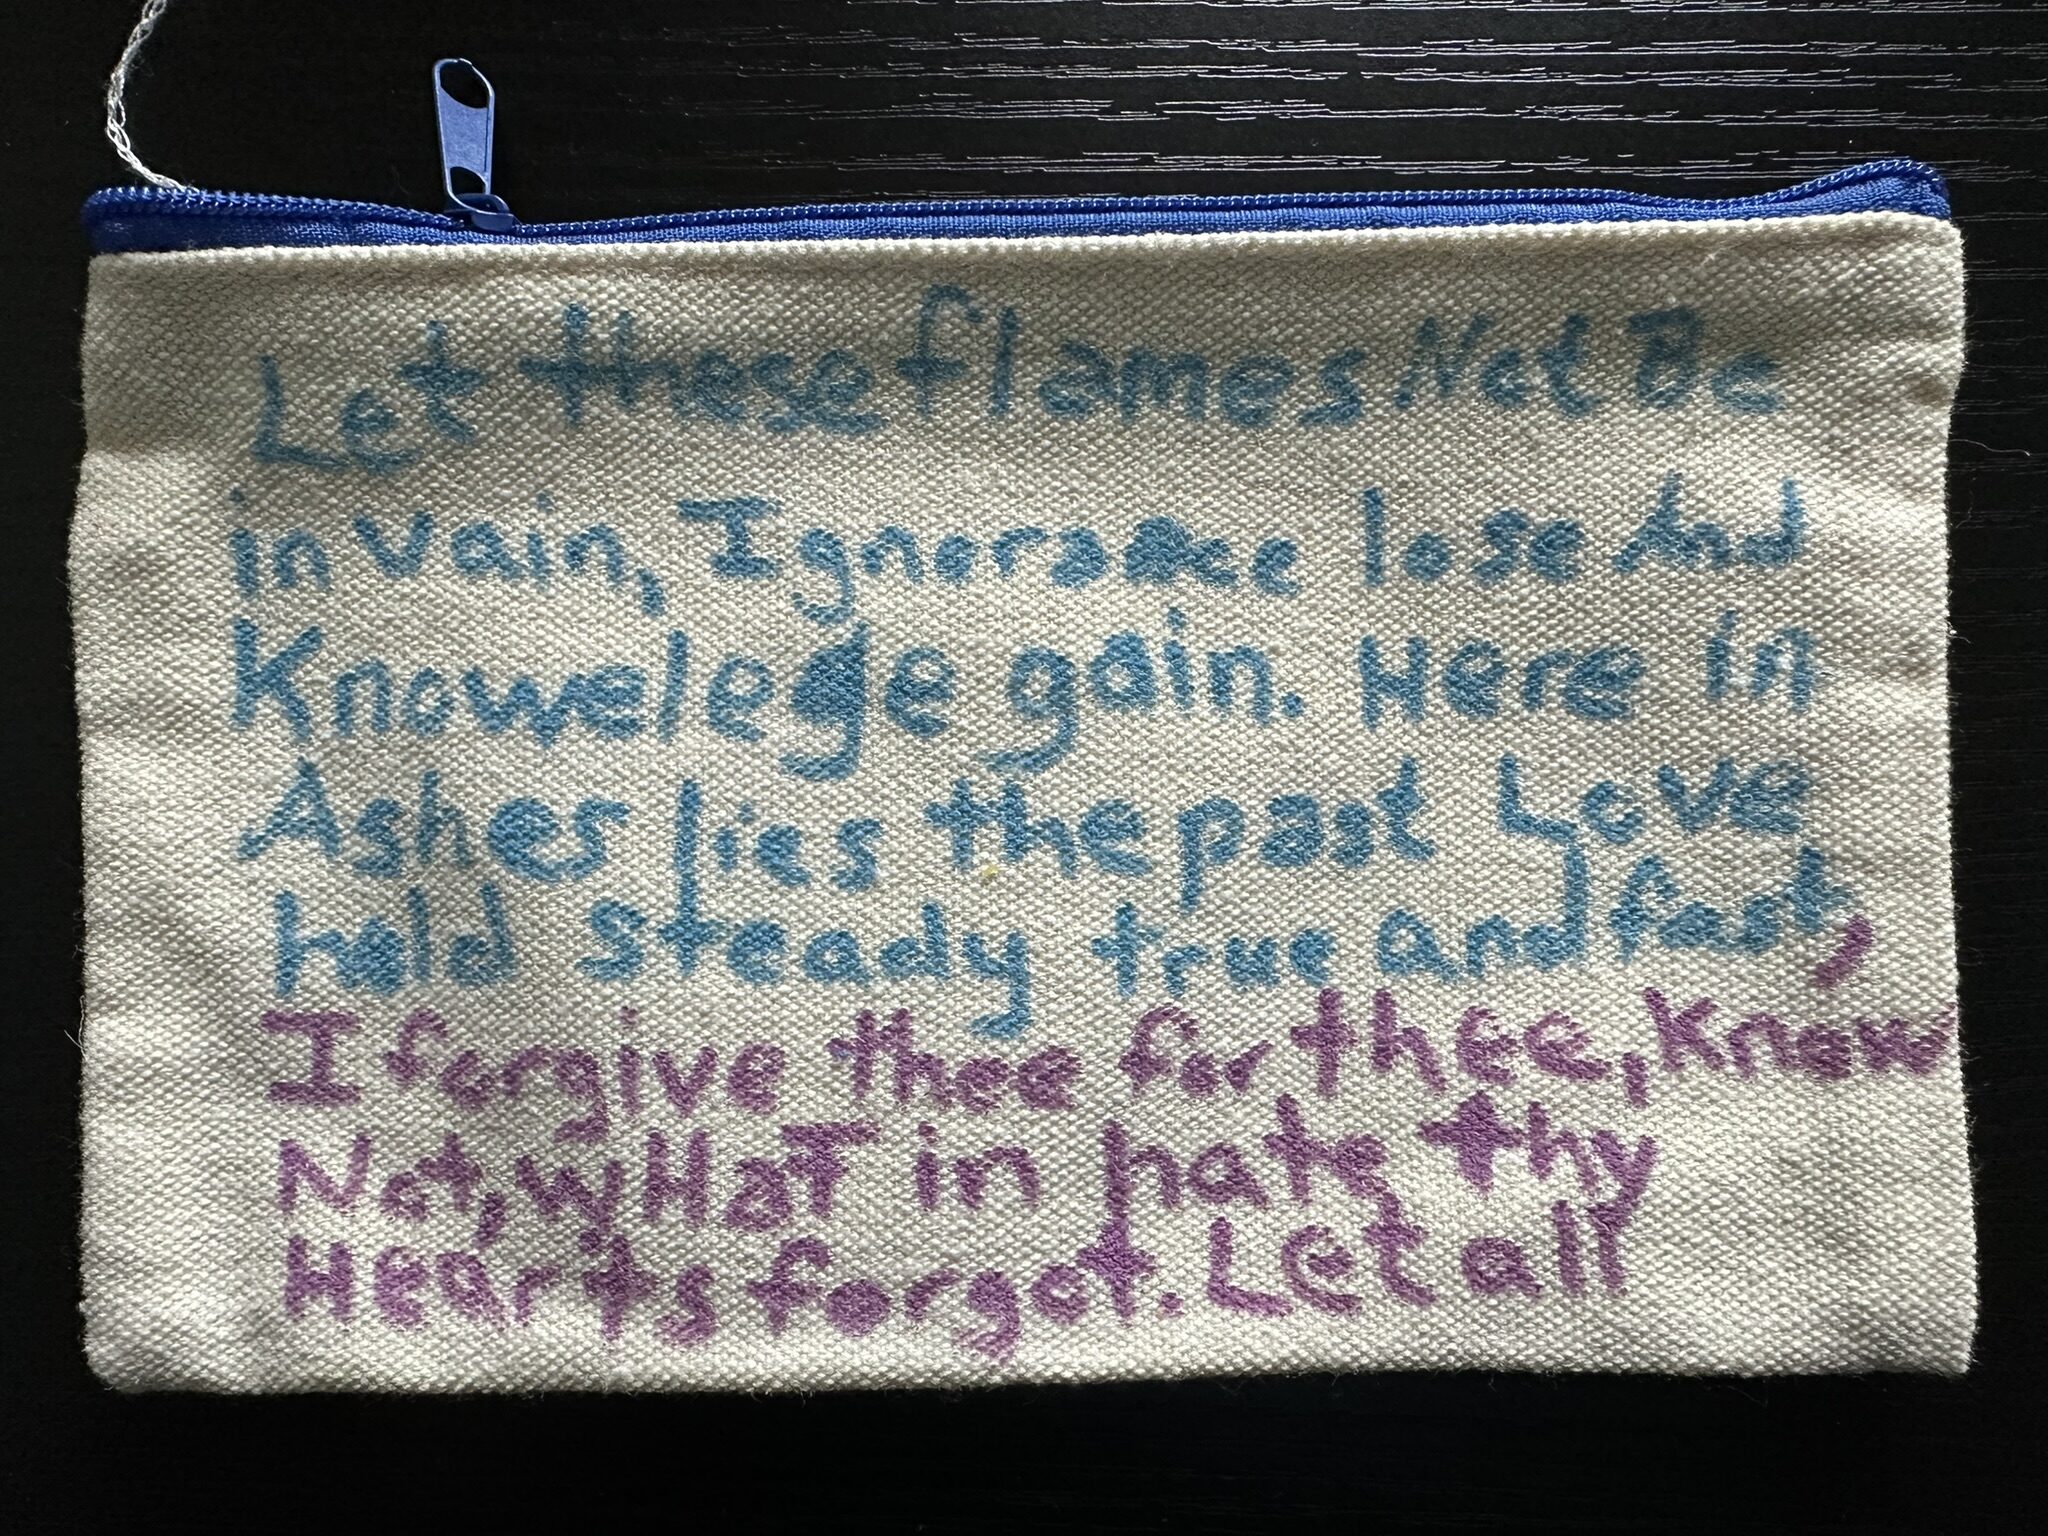 Let these flames Not Be
in vain, Ignorance lose And
Knowelege gain. Here in
Ashes lies the past Love
hold steady true and fast,
I forgive thee for thee, Know
Not, wHaT in hate thy
Hearts forgot. Let all